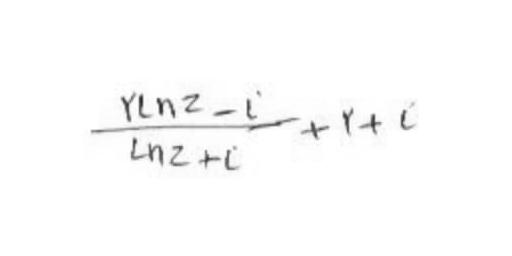 ۲Lnz - i
Lnz + i
+ ۲ + i